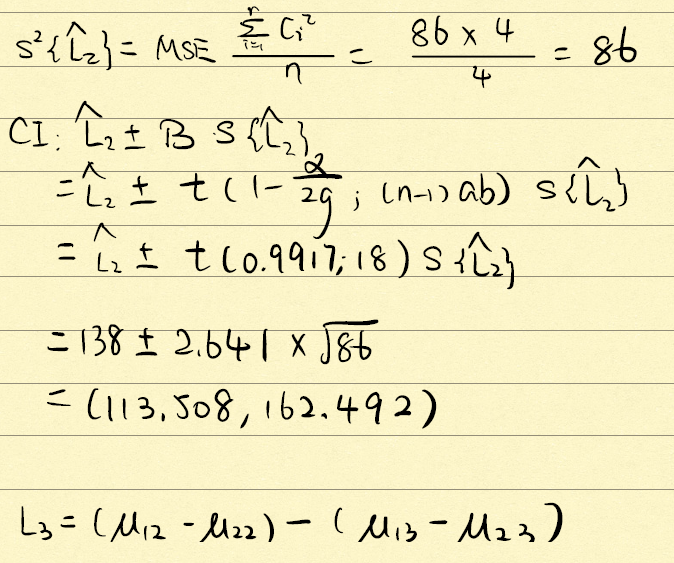 s²{L̂₂} = MSE \frac{\sum_{i=1}^{n} C_i²}{n} = \frac{86 × 4}{4} = 86
CI: L̂₂ ± B s{L̂₂}
= L̂₂ ± t(1 - \frac{α}{2g}; (n-1)ab) s{L̂₂}
= L̂₂ ± t(0.9917; 18) s{L̂₂}
= 138 ± 2.641 × √86
= (113.508, 162.492)
L₃ = (μ₁₂ - μ₂₂) - (μ₁₃ - μ₂₃)